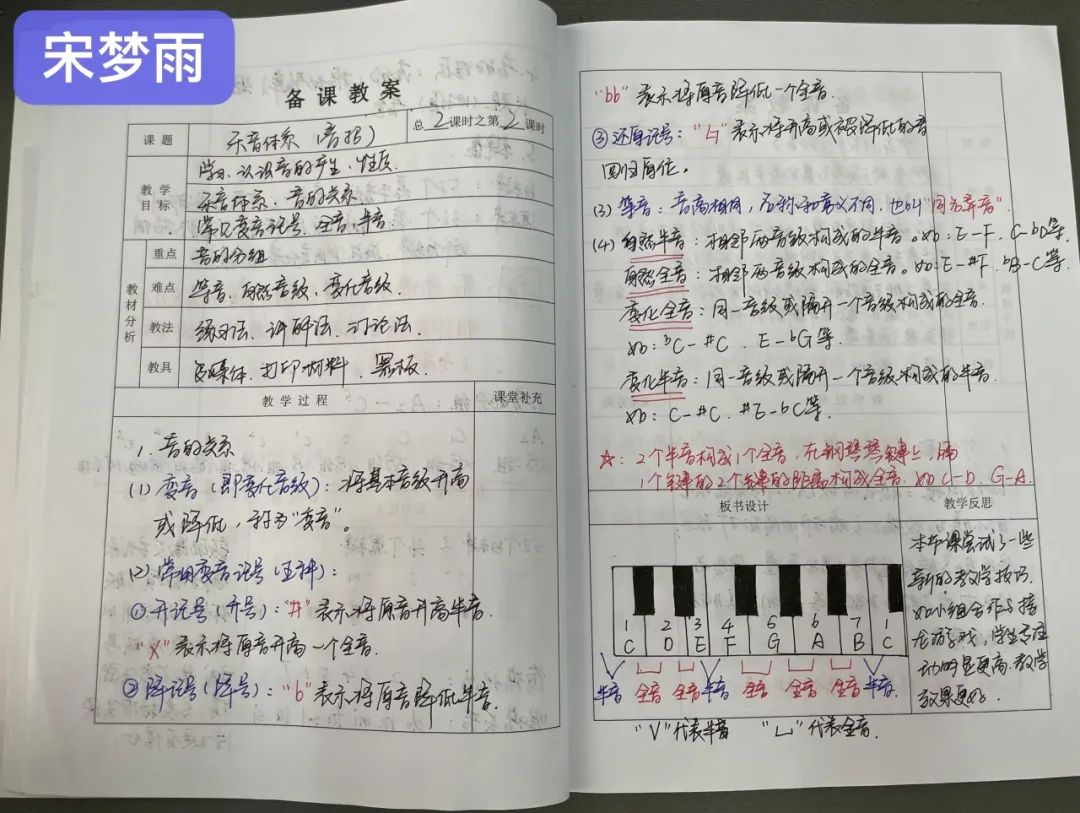 宋梦雨
备课教案
课题
乐音体系（音扬）
总2课时之第2课时
教学目标
学习、认识音的产生、性质.
乐音体系、音的关系.
常见变音记号、全音、半音.
教材分析
重点
音的分组
难点
等音、自然音级、变化音级.
教法
练习法、讲解法、讨论法.
教具
多媒体、打印材料、黑板.
教学过程
课堂补充
1. 音的关系
(1) 变音（即变化音级）：将基本音级升高
或降低，称为“变音”。
(2) 常用变音记号（五种）：
①升记号（升号）：“#”表示将原音升高半音.
“X”表示将原音升高一个全音.
②降记号（降号）：“b”表示将原音降低半音.
“bb”表示将原音降低一个全音.
③还原记号：“♮”表示将升高或被降低的音
回归原位。
(3) 等音：音高相同，名称和意义不同，也叫“同音异音”.
(4) 自然半音：相邻两音级构成的半音。如：E-F. C-bD等.
自然全音：相邻两音级构成的全音。如：E-#F. bB-C等.
变化全音：同一音级或隔开一个音级构成的全音.
如：bC-#C. E-bG等.
变化半音：同一音级或隔开一个音级构成的半音.
如：C-#C. #E-bC等.
☆：2个半音构成1个全音，在钢琴琴键上隔
1个键的2个键的距离构成全音. 如C-D. G-A.
板书设计
教学反思
1 2 3 4 5 6 7 1
C D E F G A B C
半音 全音 全音 半音 全音 全音 全音 半音.
“V”代表半音 “⊔”代表全音.
本节课尝试了一些
新的教学技巧.
如小组合作与接
龙游戏，学生主
动明显更高. 教学
效果更好.